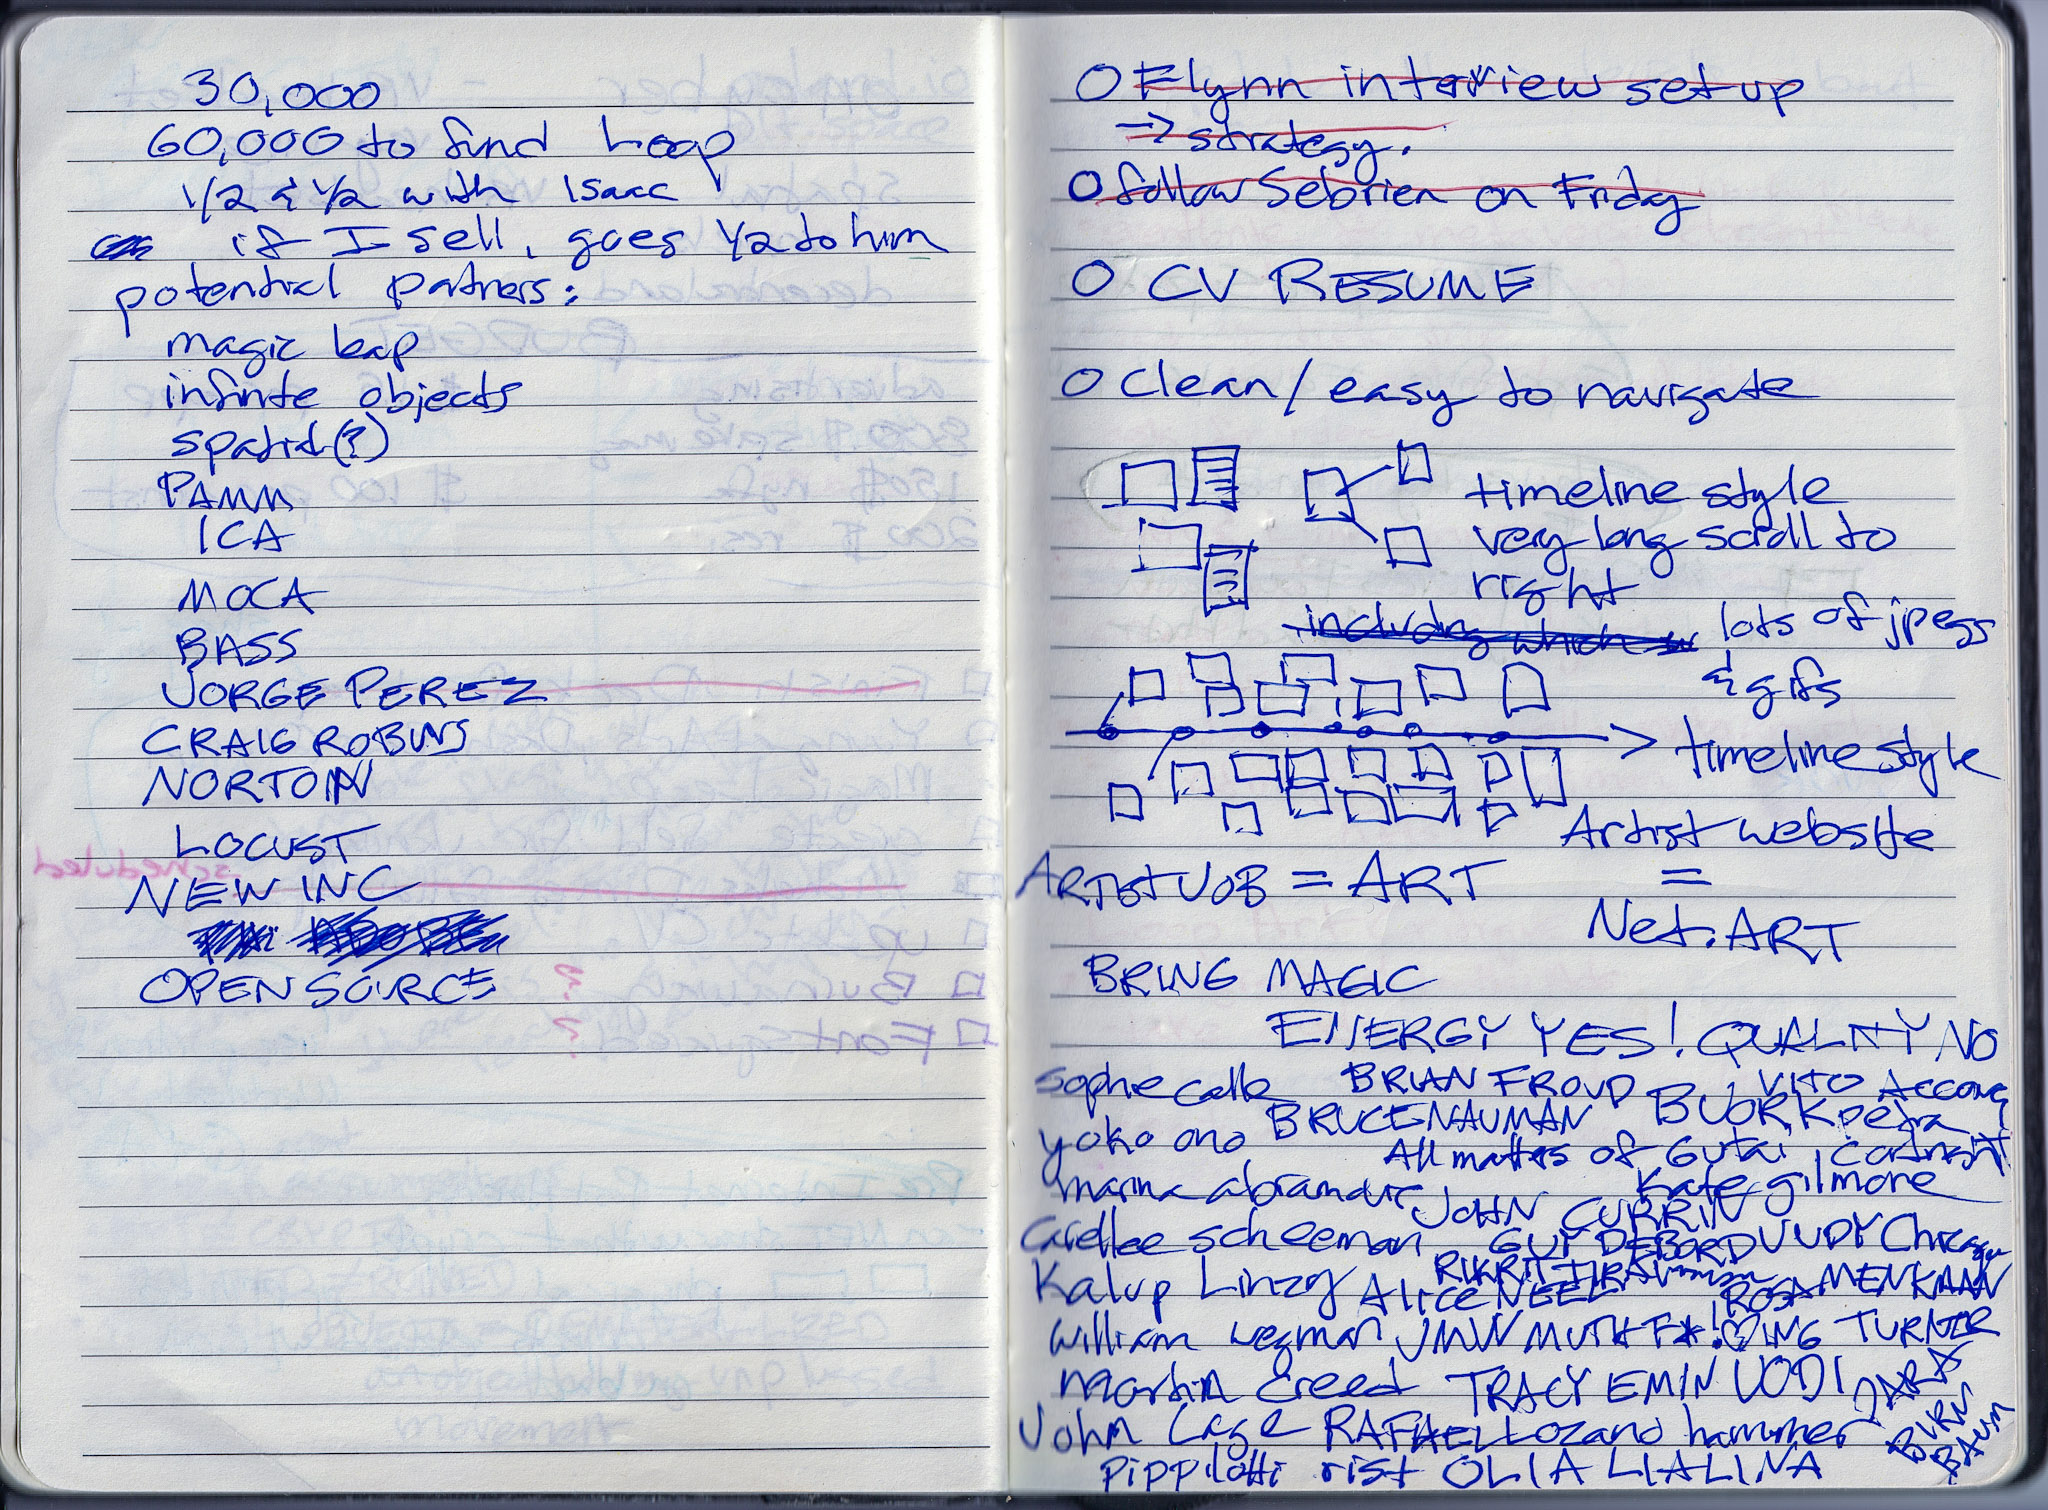 30,000
60,000 to fund Loop
1/2 & 1/2 with Isaac
if I sell, goes 1/2 to him
potential partners:
magic leap
infinite objects
spatial(?)
PAMM
ICA
MOCA
BASS
JORGE PEREZ
CRAIG ROBINS
NORTON
LOCUST
NEW INC
OPEN SOURCE
O Flynn interview set up
→ strategy.
O follow Sebrien on Friday
O CV RESUME
O Clean/easy to navigate
timeline style
very long scroll to
right
including which
lots of jpegs
& gifs
timeline style
Artist website
ARTIST JOB = ART
=
Net.ART
BRING MAGIC
ENERGY YES! QUALITY NO
Sophie calle BRIAN FROUD BJORK, VITO Acconci
yoko ono BRUCE NAUMAN petra
All matters of Gutai, cortright
marina abramovic JOHN CURRIN Kate gilmore
Carollee scheeman GUY DEBORD JUDY Chicago
Kalup Linzy Alice NEEL RIKRIT ROSA MENKMAN
william wegman JMW MUTHF*!♡ING TURNER
Martin Creed TRACY EMIN JODI DARA
BIRN
BAUM
John Cage RAFAEL Lozano hammer
pippilotti rist OLIA LIALINA